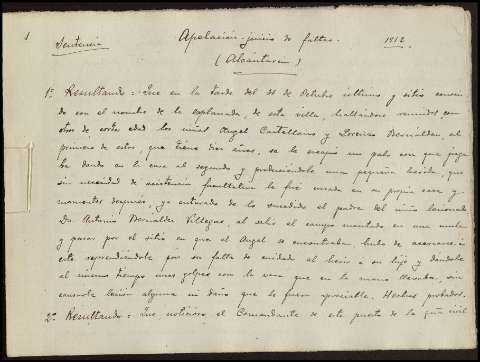 1
Sentencia
Apelación-juicio de faltas.
1912.
(Alcántara)
1º Resultando: Que en la tarde del 31 de Octubre último y sitio conoci-
do con el nombre de la esplanada, de esta villa, hallándose reunidos con
otros de corta edad los niños Angel Castellano y Lorenzo Bernáldez, al
primero de estos, que tiene diez años, se le escapó un palo con que juga-
ba dando en la cara al segundo y produciéndole una pequeña herida, que
sin necesidad de asistencia facultativa le fué curada en su propia casa y
momentos después, ya enterado de lo sucedido el padre del niño lesionado
Dn. Antonio Bernáldez Villegas, al salir al campo montado en una mula
y pasar por el sitio en que el Angel se encontraba, hubo de acercarse a
este reprendiéndole por su falta de cuidado al herir a su hijo y dándole
al mismo tiempo unos golpes con la vara que en la mano llevaba, sin
causarle lesión alguna ni daño que le fuera apreciable. Hechos probados.
2º Resultando: Que, noticioso el Comandante de este puesto de la guardia civil